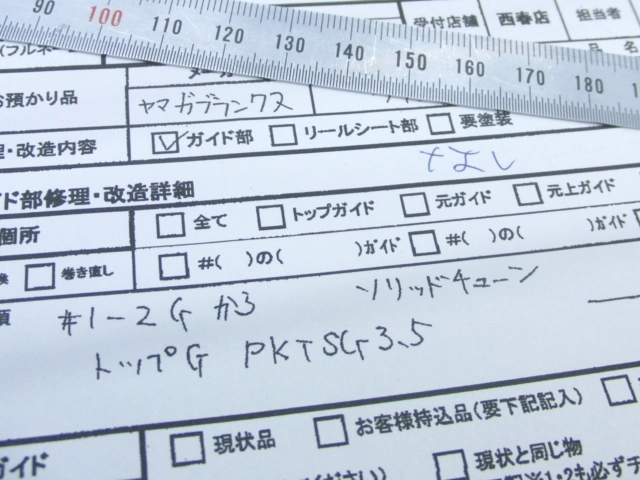 90 100 110 120 130 140 150 160 170 180
受付店舗 西春店 担当者
(フルネー
お預かり品 ヤマガブランクス
理・改造内容 ☑ガイド部 □リールシート部 □要塗装
ド部修理・改造詳細
個所 □全て □トップガイド □元ガイド □元上ガイド
□巻き直し □#( )の( )ガイド □#( )の( )ガイド
項 #1-2G から ソリッドチューン
トップG PKTSG3.5
ガイド □現状品 □お客様持込品(要下記記入)
ください) □現状と同じ物